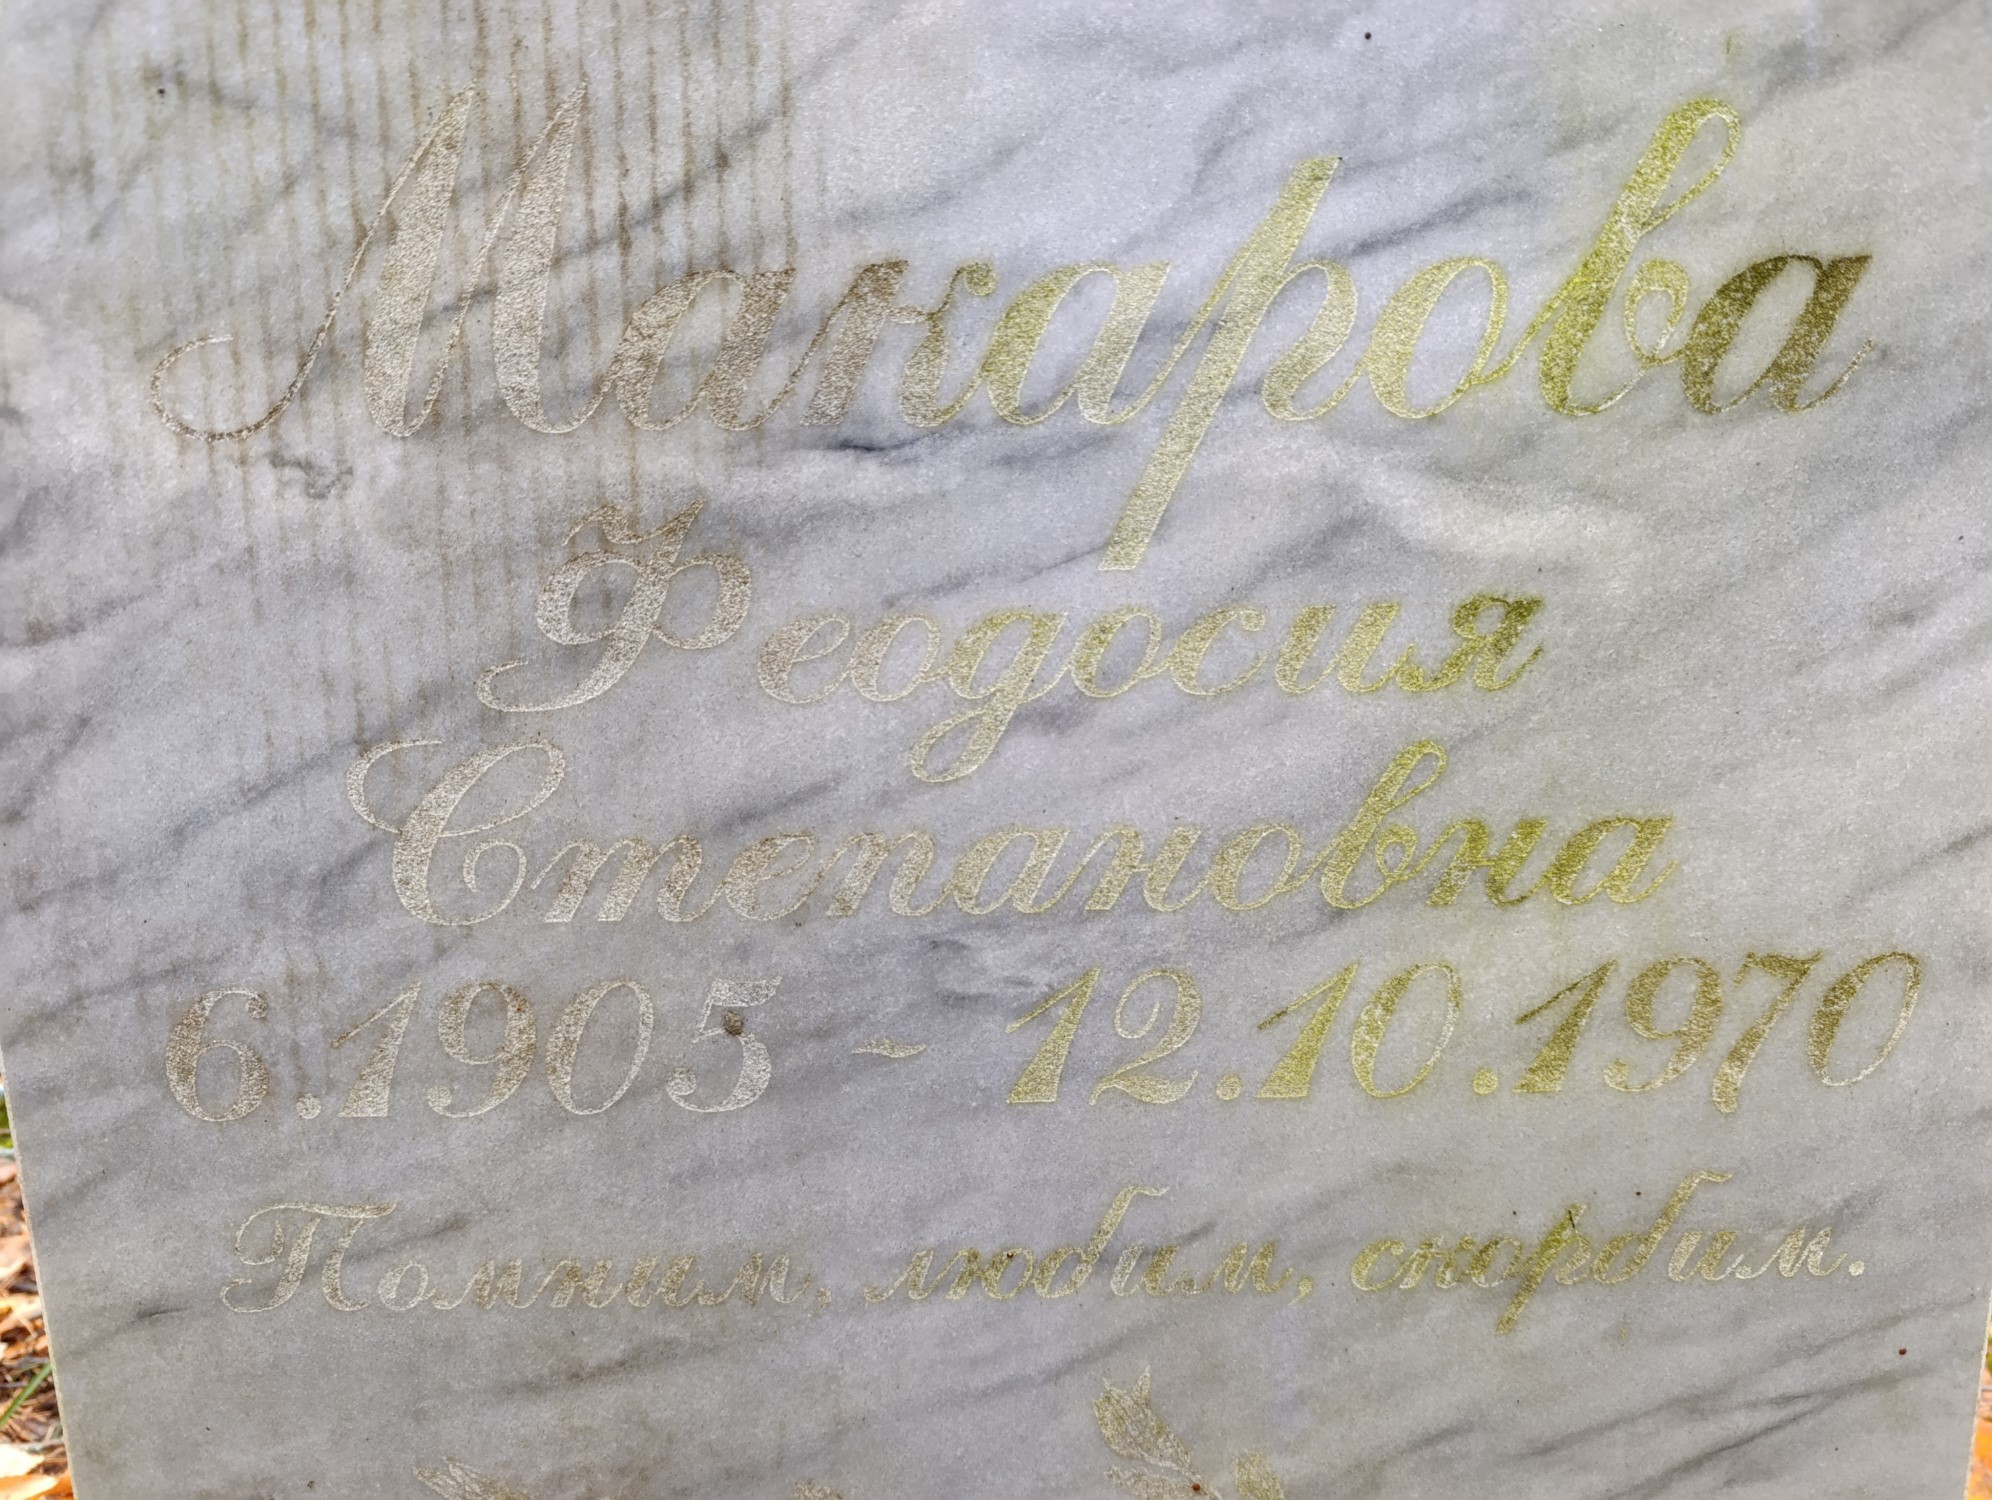 Макарова
Феодосия
Степановна
6.1905 - 12.10.1970
Помним, любим, скорбим.